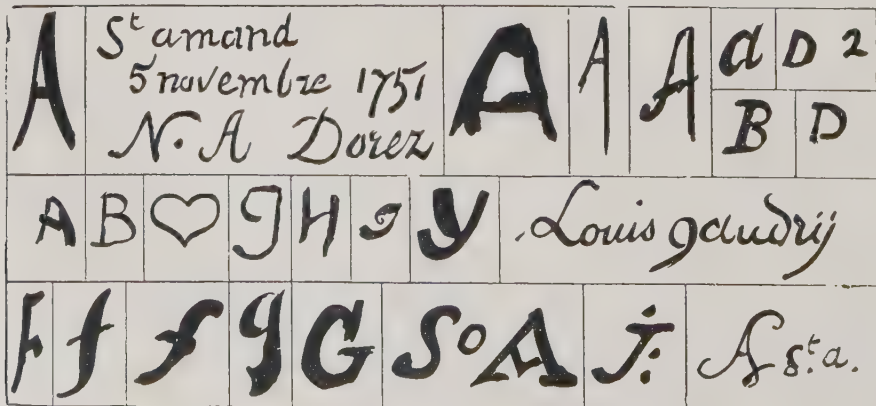 A
St amand
5 novembre 1751
N. A Dorez
A
A
A
a
D 2
B
D
A
B
g
H
y
Louis gaudrij
F
f
f
g
G
S o A
J:
A st. a.